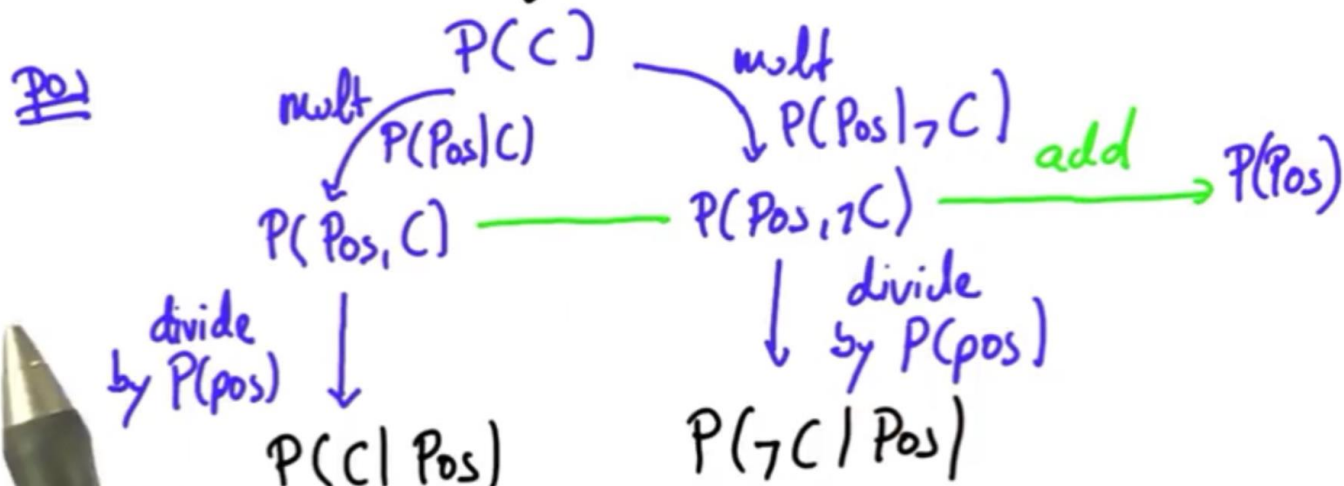 P(C)
Pos
mult
mult
P(Pos|C)
P(Pos|¬C)
add
P(Pos)
P(Pos, C)
P(Pos, ¬C)
divide
by P(pos)
divide
by P(pos)
P(C| Pos)
P(¬C | Pos)